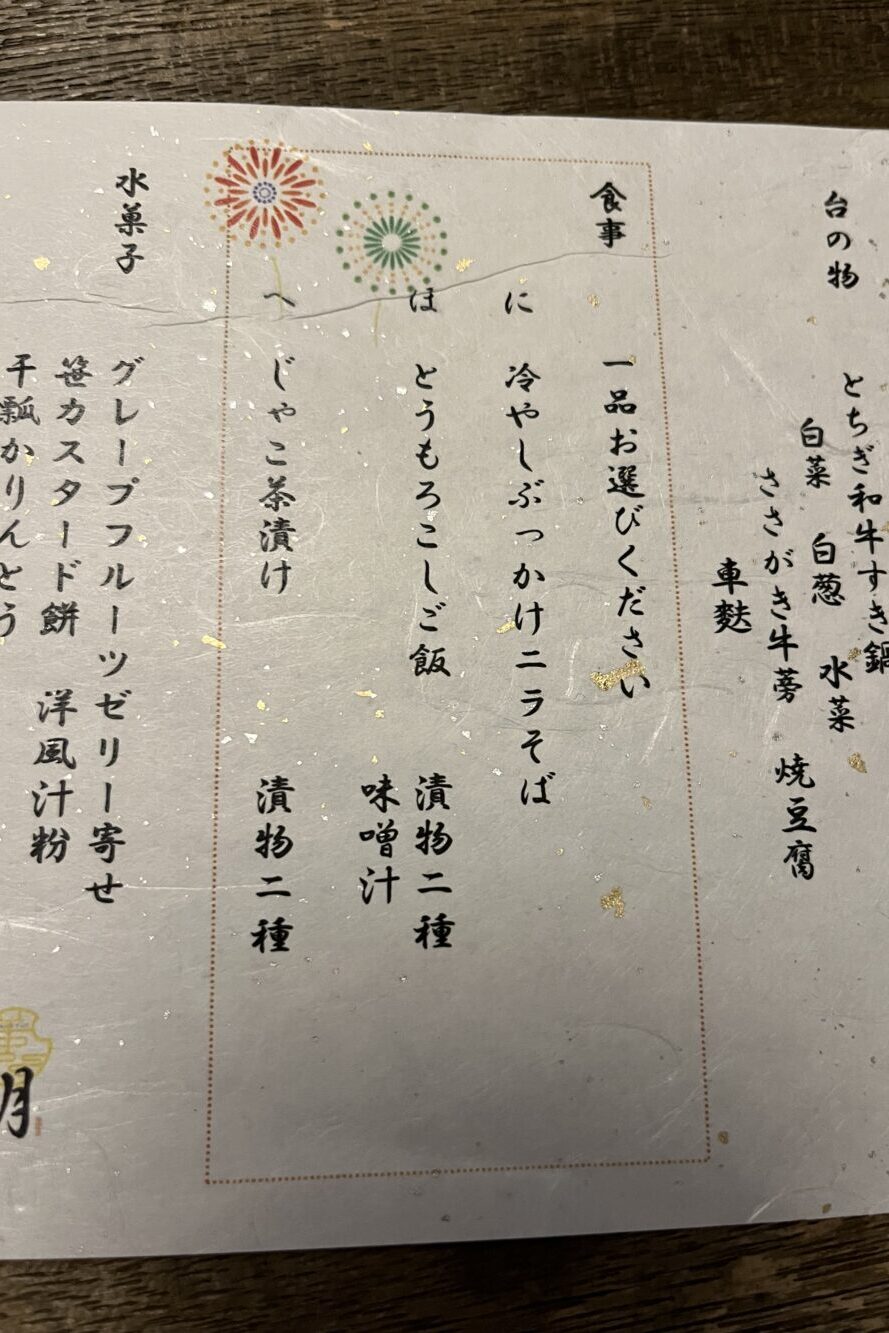 台の物
とちぎ和牛すき鍋
白菜　白葱　水菜
ささがき牛蒡　焼豆腐
車麩
食事
一品お選びください
に　冷やしぶっかけニラそば
ほ　とうもろこしご飯　漬物二種
味噌汁
へ　じゃこ茶漬け　漬物二種
水菓子
グレープフルーツゼリー寄せ
笹カスタード餅　洋風汁粉
干瓢かりんとう
月